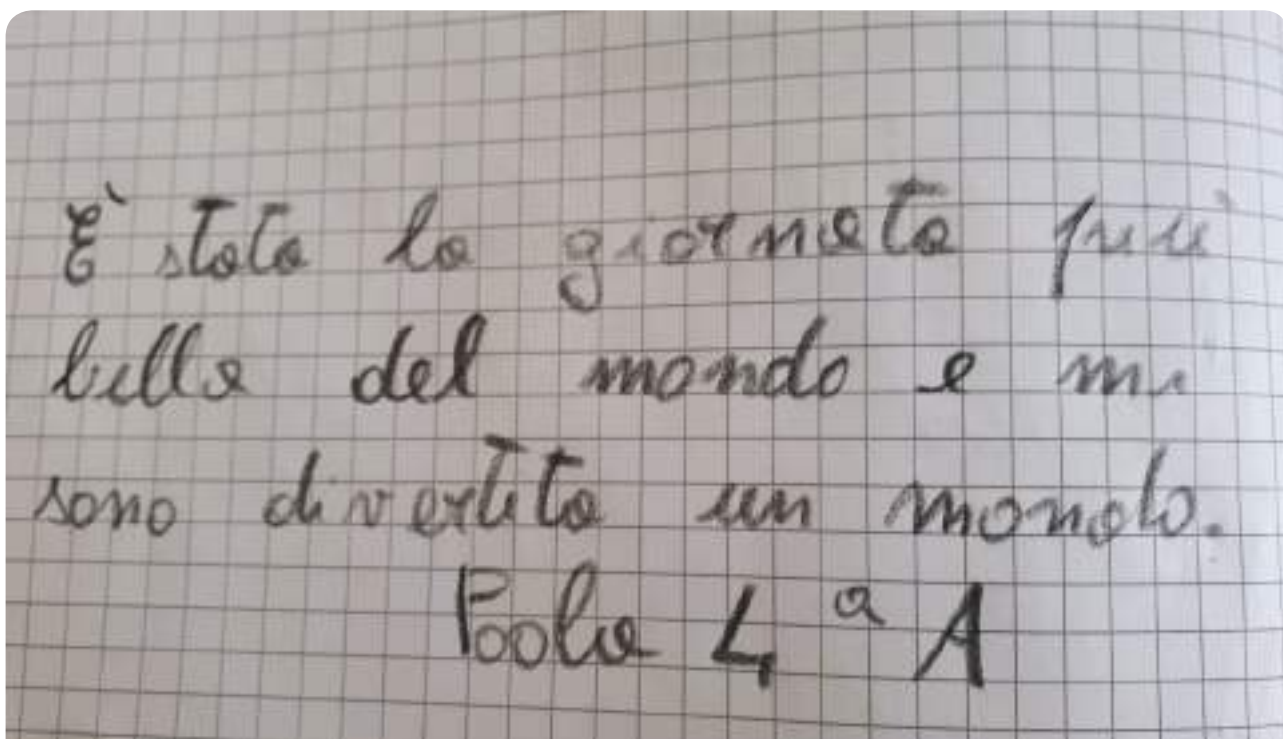 È stata la giornata più
bella del mondo e mi
sono divertita un mondo.
Paola 4ª A